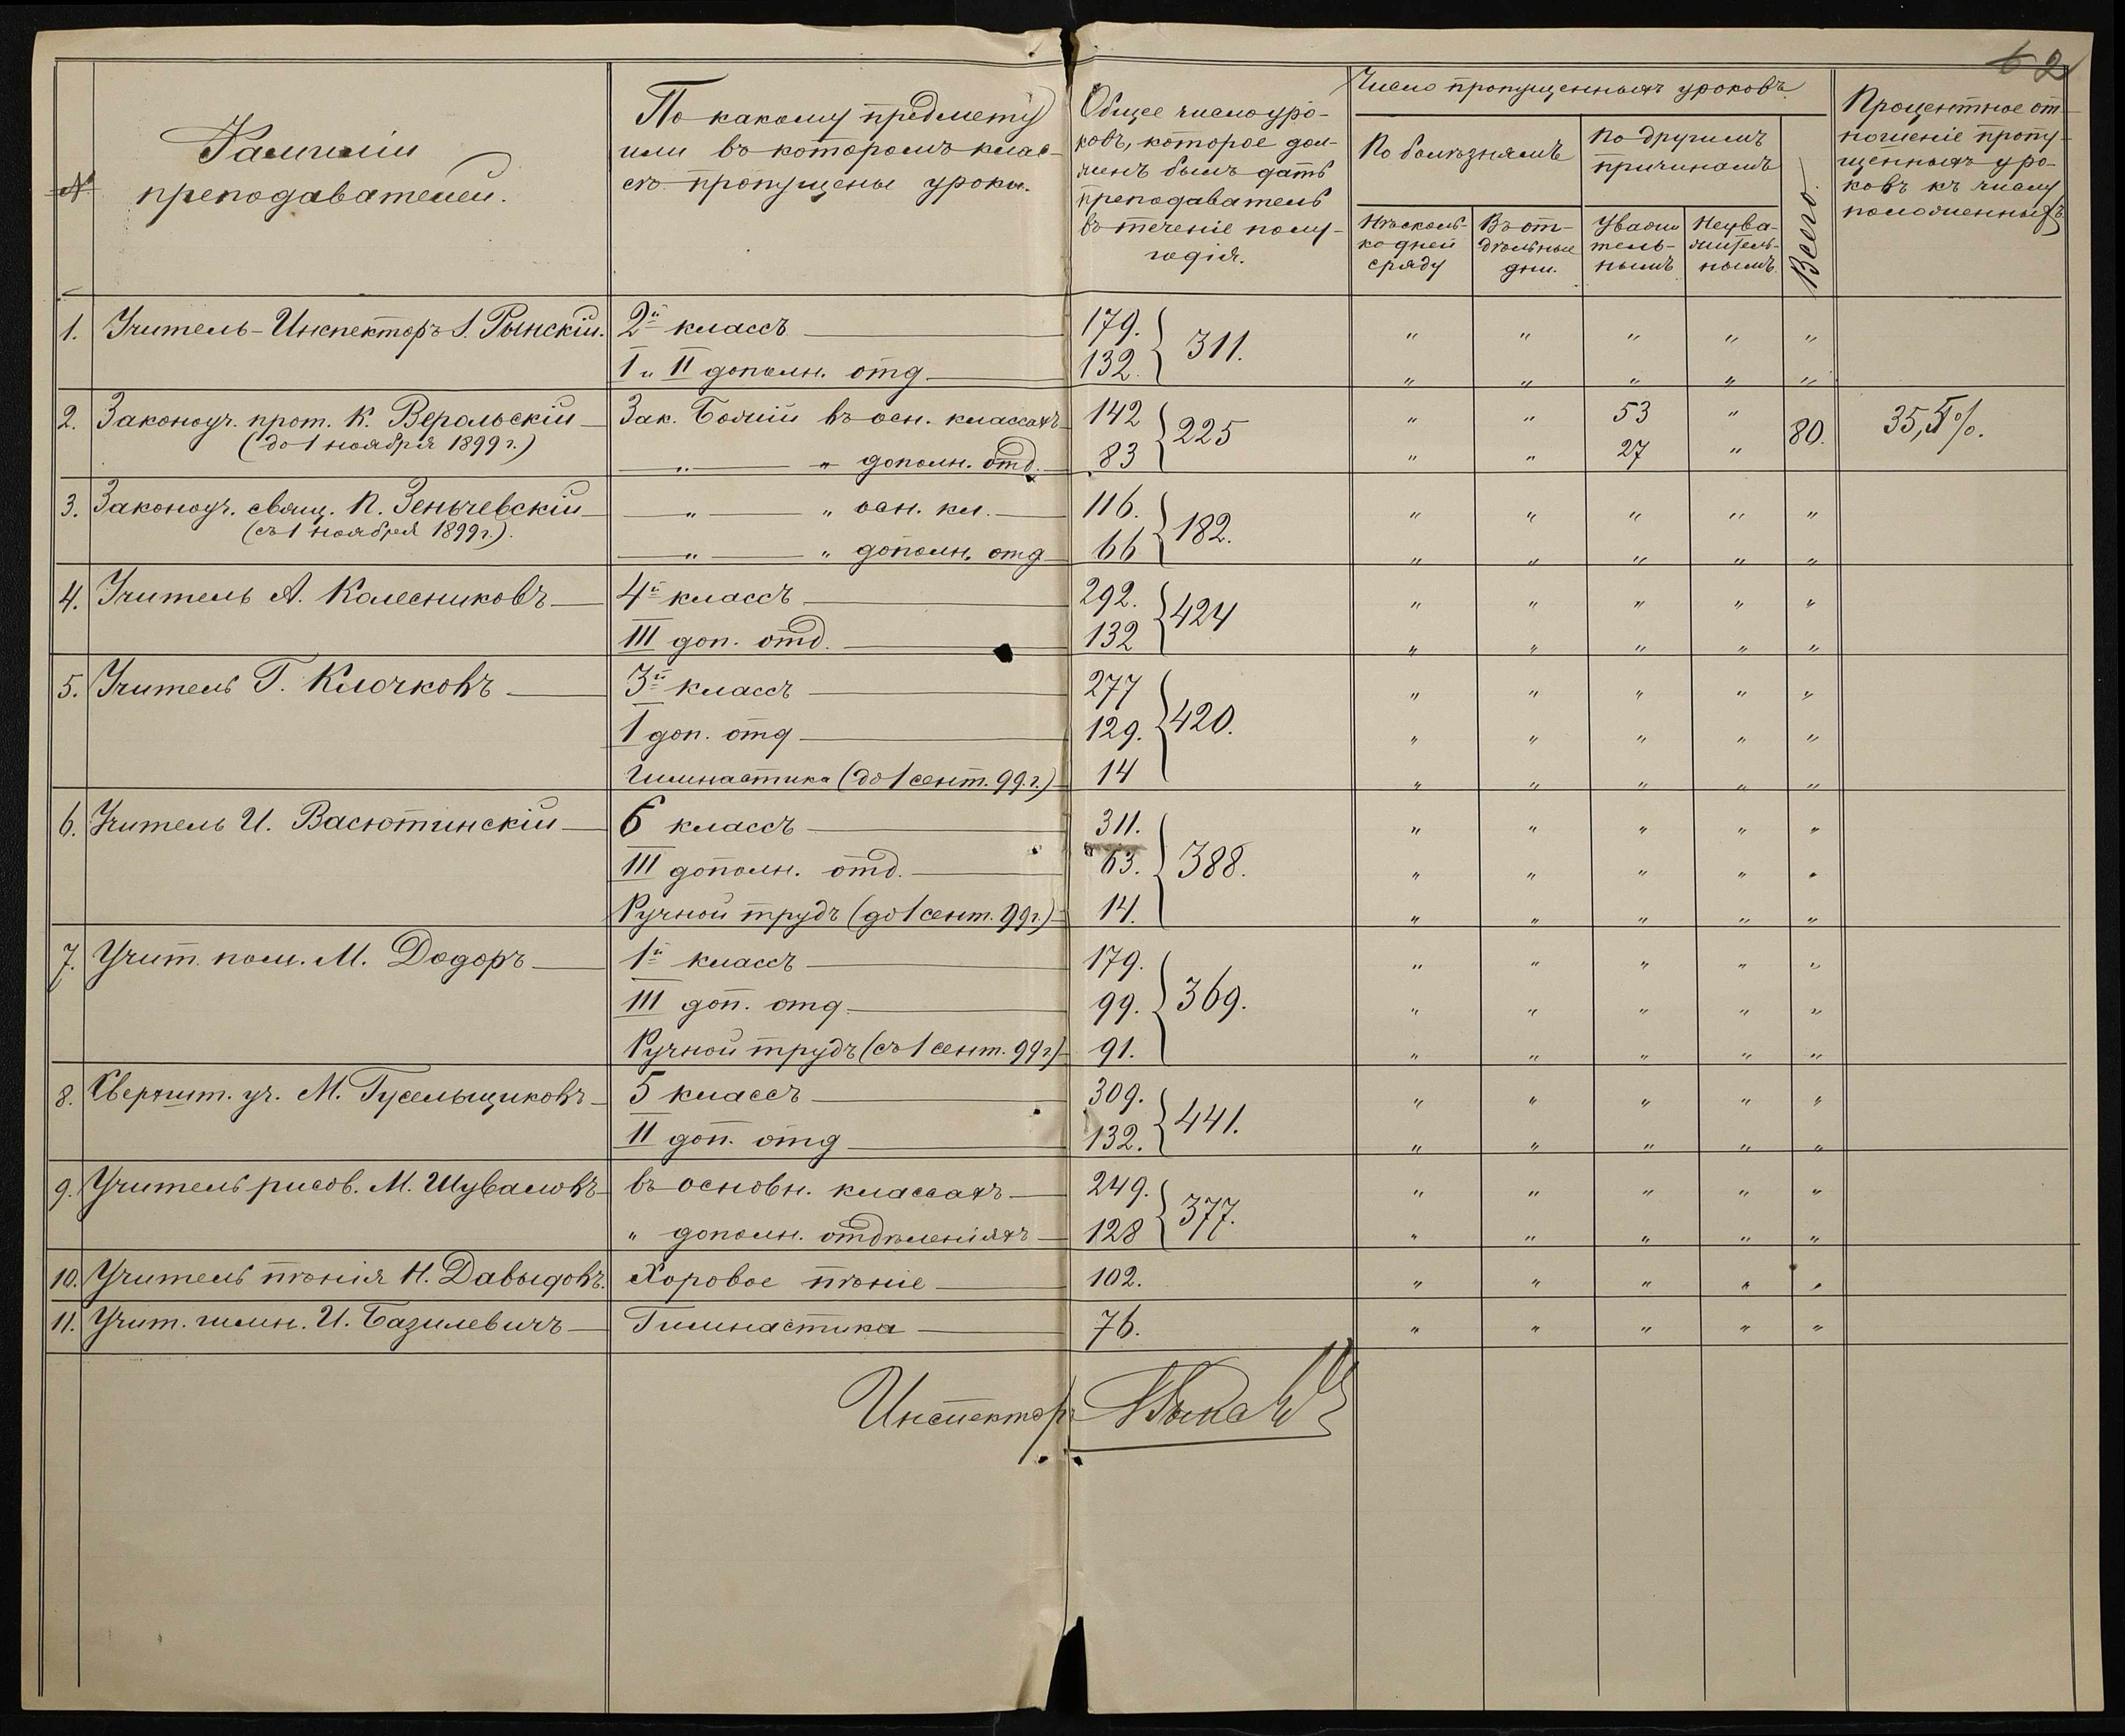 62
№
Фамиліи
преподавателей.
По какому предмету
или въ которомъ клас-
съ пропущены уроки.
Общее число уро-
ковъ, которое дол-
женъ былъ дать
преподаватель
въ теченіе полу-
годія.
Число пропущенныхъ уроковъ.
По болѣзнямъ
По другимъ
причинамъ
Нѣсколь-
ко дней
сряду
Въ от-
дѣльные
дни.
Уважи
тель-
нымъ
Неува-
житель-
нымъ.
Всего.
Процентное от-
ношеніе пропу-
щенныхъ уро-
ковъ къ числу
положенныхъ
1. Учитель-Инспекторъ І. Рынскій. 2й классъ 179. 311. " " " " "
I и II дополн. отд. 132. " " " " "
2. Законоуч. прот. К. Верольскій Зак. Божій въ осн. классахъ 142 225 " " 53 " 80. 35,5%.
(до 1 ноября 1899 г.) " " дополн. отд. 83 " " 27 "
3. Законоуч. свящ. П. Зеньчевскій " " осн. кл. 116. 182. " " " " "
(съ 1 ноября 1899 г.). " " дополн. отд 66 " " " " "
4. Учитель А. Колесниковъ 4й классъ 292. 424 " " " " "
III доп. отд. 132 " " " " "
5. Учитель Г. Клочковъ 3й классъ 277 420. " " " " "
I доп. отд 129. " " " " "
Гимнастика (до 1 сент. 99 г.) 14 " " " " "
6. Учитель И. Васютинскій 6 классъ 311. 388. " " " " "
III дополн. отд. 63. " " " " "
Ручной трудъ (до 1 сент. 99 г.) 14. " " " " "
7. Учит. пом. М. Додоръ 1й классъ 179. 369. " " " " "
III доп. отд. 99. " " " " "
Ручной трудъ (съ 1 сент. 99 г.) 91. " " " " "
8. Сверхшт. уч. М. Гусельщиковъ 5 классъ 309. 441. " " " " "
II доп. отд 132. " " " " "
9. Учитель рисов. М. Шуваловъ въ основн. классахъ 249. 377. " " " " "
" дополн. отдѣленіяхъ 128 " " " " "
10. Учитель пѣнія Н. Давыдовъ. Хоровое пѣніе 102. " " " " "
11. Учит. гимн. И. Базилевичъ Гимнастика 76. " " " " "
Инспекторъ